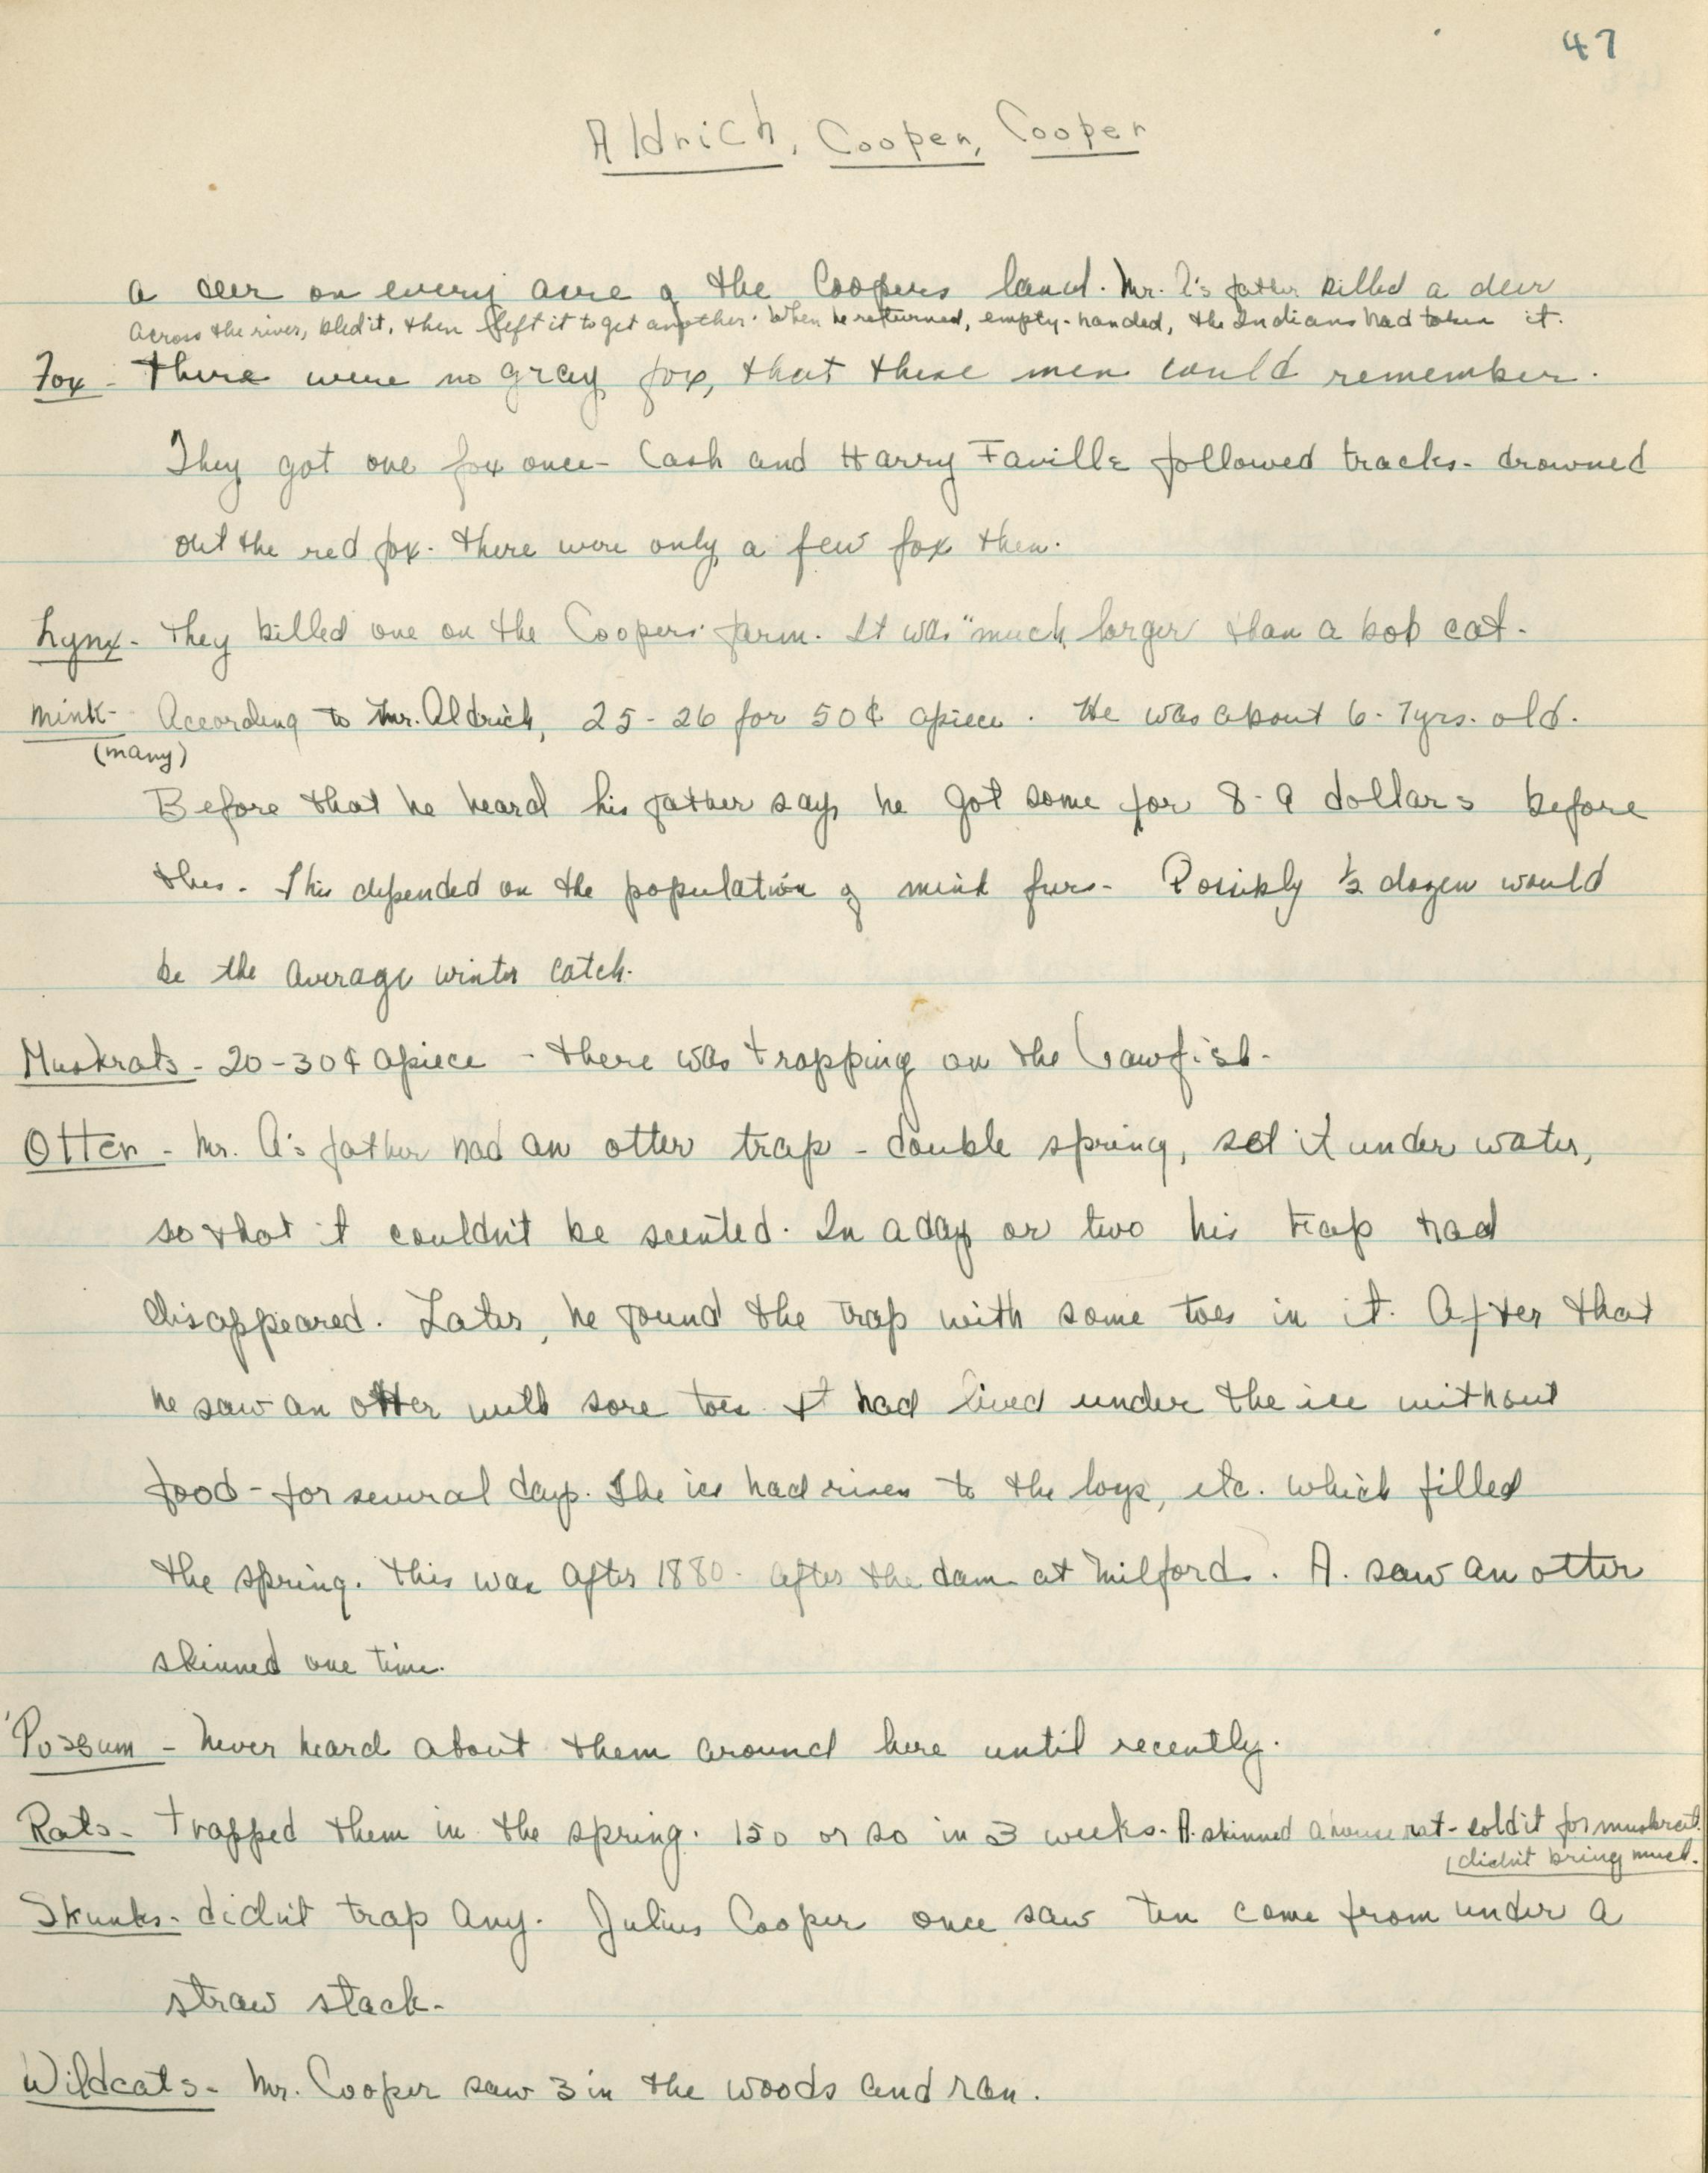 47
Aldrich, Cooper, Cooper
a deer on every acre of the Coopers land. Mr. A's father killed a deer
across the river, bled it, then left it to get another. When he returned, empty-handed, the Indians had taken it.
Fox - There were no gray fox, that these men could remember.
They got one fox once - Cash and Harry Faville followed tracks - drowned
out the red fox. There were only a few fox then.
Lynx - They killed one on the Coopers' farm. It was "much larger than a bob cat.
Mink - According to Mr. Aldrich, 25-26 for 50¢ apiece. He was about 6-7 yrs. old.
(many)
Before that he heard his father say he got some for 8-9 dollars before
this. This depended on the population of mink furs. Possibly ½ dozen would
be the average winter catch.
Muskrats - 20-30¢ apiece - there was trapping on the Crawfish.
Otter - Mr. A's father had an otter trap - double spring, set it under water,
so that it couldn't be scented. In a day or two his trap had
disappeared. Later, he found the trap with some toes in it. After that
he saw an otter with sore toes. It had lived under the ice without
food - for several days. The ice had risen to the logs, etc. which filled
the spring. This was after 1880. After the dam at Milford. A. saw an otter
skinned one time.
'Possum - Never heard about them around here until recently.
Rats - Trapped them in the spring. 150 or so in 3 weeks. A. skinned a house rat - sold it for muskrat.
didn't bring much.
Skunks - didn't trap any. Julius Cooper once saw ten come from under a
straw stack.
Wildcats - Mr. Cooper saw 3 in the woods and ran.